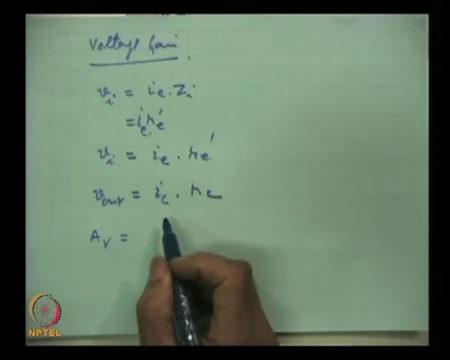 Voltage Gain.
v_i = i_e . Z_i
= i_e r_e'
v_i = i_e . r_e'
v_out = i_c . r_c
A_V =
NPTEL